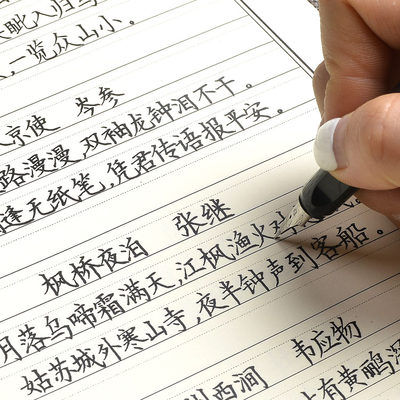 眦入归鸟
，一览众山小。
京使 岑参
路漫漫，双袖龙钟泪不干。
逢无纸笔，凭君传语报平安。
枫桥夜泊 张继
月落乌啼霜满天，江枫渔火对
姑苏城外寒山寺，夜半钟声到客船。
西涧 韦应物
有黄鹂深